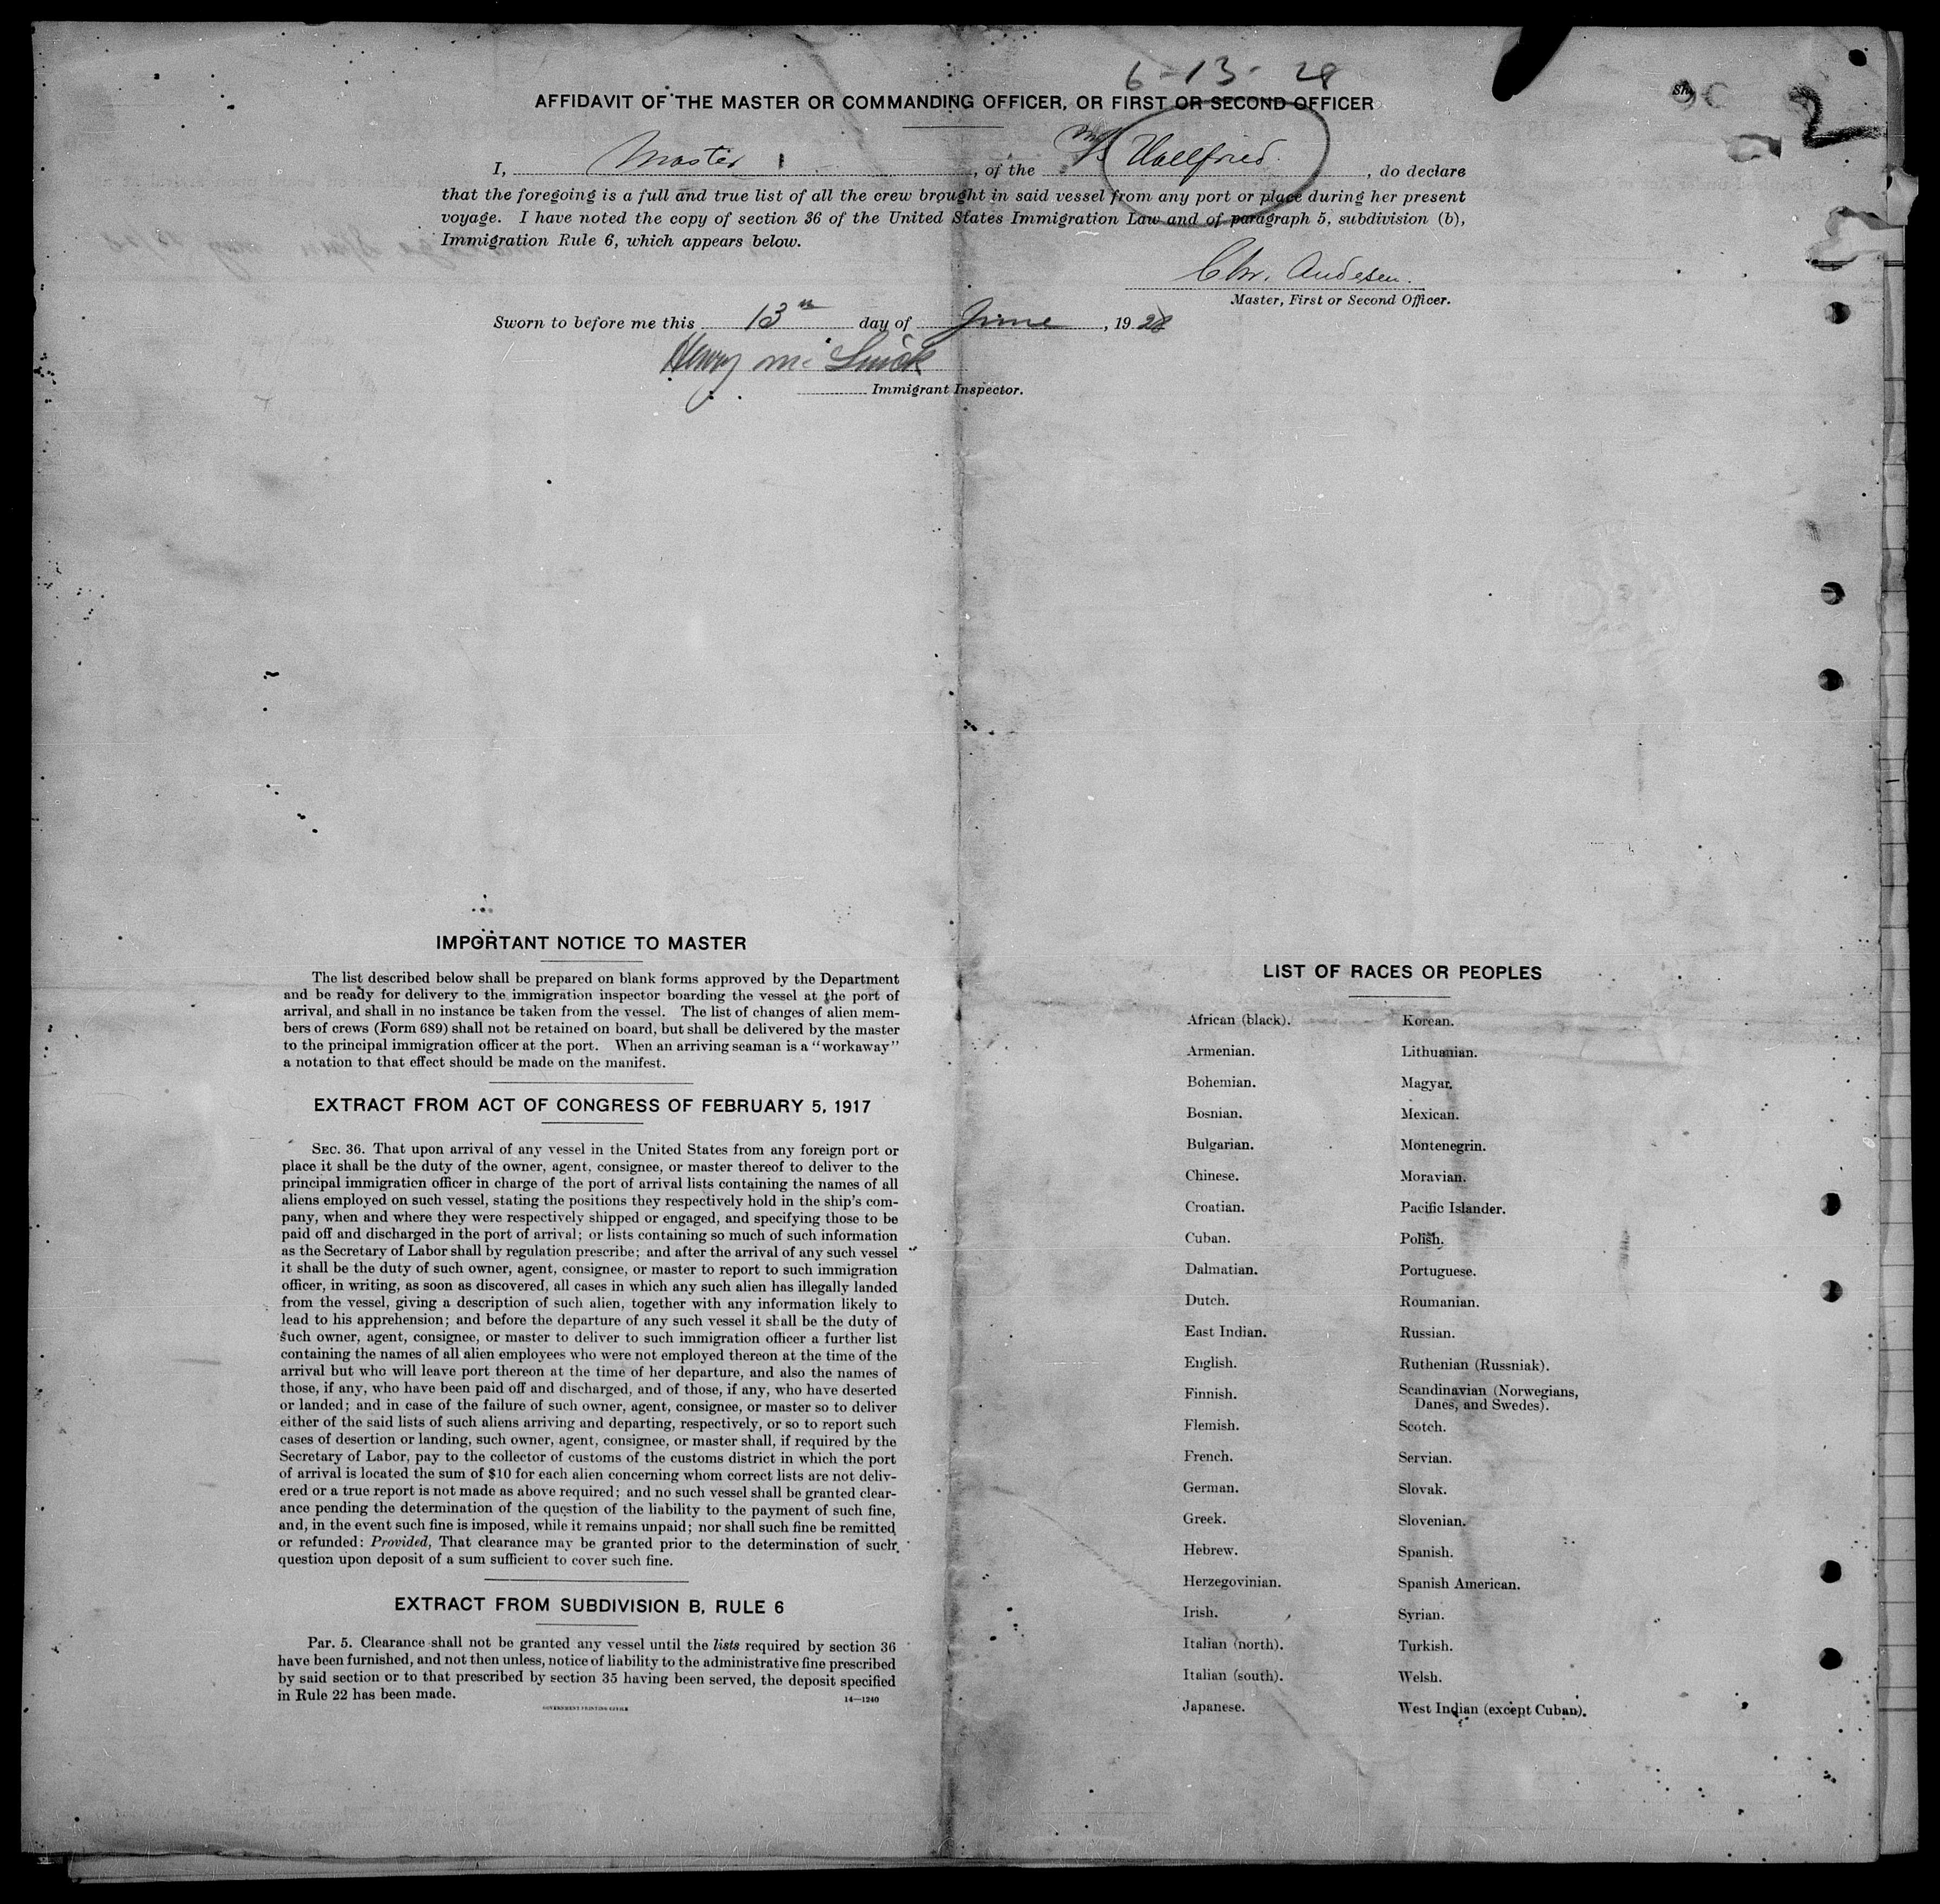 6-13-28
AFFIDAVIT OF THE MASTER OR COMMANDING OFFICER, OR FIRST OR SECOND OFFICER
2
I, Master, of the M/S Vallfried, do declare
that the foregoing is a full and true list of all the crew brought in said vessel from any port or place during her present
voyage. I have noted the copy of section 36 of the United States Immigration Law and of paragraph 5, subdivision (b),
Immigration Rule 6, which appears below.
Chr. Andesen.
Master, First or Second Officer.
Sworn to before me this 13th day of June, 1928
Henry Mc
Immigrant Inspector.
IMPORTANT NOTICE TO MASTER
The list described below shall be prepared on blank forms approved by the Department
and be ready for delivery to the immigration inspector boarding the vessel at the port of
arrival, and shall in no instance be taken from the vessel. The list of changes of alien mem-
bers of crews (Form 689) shall not be retained on board, but shall be delivered by the master
to the principal immigration officer at the port. When an arriving seaman is a "workaway"
a notation to that effect should be made on the manifest.
EXTRACT FROM ACT OF CONGRESS OF FEBRUARY 5, 1917
SEC. 36. That upon arrival of any vessel in the United States from any foreign port or
place it shall be the duty of the owner, agent, consignee, or master thereof to deliver to the
principal immigration officer in charge of the port of arrival lists containing the names of all
aliens employed on such vessel, stating the positions they respectively hold in the ship's com-
pany, when and where they were respectively shipped or engaged, and specifying those to be
paid off and discharged in the port of arrival; or lists containing so much of such information
as the Secretary of Labor shall by regulation prescribe; and after the arrival of any such vessel
it shall be the duty of such owner, agent, consignee, or master to report to such immigration
officer, in writing, as soon as discovered, all cases in which any such alien has illegally landed
from the vessel, giving a description of such alien, together with any information likely to
lead to his apprehension; and before the departure of any such vessel it shall be the duty of
such owner, agent, consignee, or master to deliver to such immigration officer a further list
containing the names of all alien employees who were not employed thereon at the time of the
arrival but who will leave port thereon at the time of her departure, and also the names of
those, if any, who have been paid off and discharged, and of those, if any, who have deserted
or landed; and in case of the failure of such owner, agent, consignee, or master so to deliver
either of the said lists of such aliens arriving and departing, respectively, or so to report such
cases of desertion or landing, such owner, agent, consignee, or master shall, if required by the
Secretary of Labor, pay to the collector of customs of the customs district in which the port
of arrival is located the sum of $10 for each alien concerning whom correct lists are not deliv-
ered or a true report is not made as above required; and no such vessel shall be granted clear-
ance pending the determination of the question of the liability to the payment of such fine,
and, in the event such fine is imposed, while it remains unpaid; nor shall such fine be remitted
or refunded: Provided, That clearance may be granted prior to the determination of such
question upon deposit of a sum sufficient to cover such fine.
EXTRACT FROM SUBDIVISION B, RULE 6
Par. 5. Clearance shall not be granted any vessel until the lists required by section 36
have been furnished, and not then unless, notice of liability to the administrative fine prescribed
by said section or to that prescribed by section 35 having been served, the deposit specified
in Rule 22 has been made.
14—1240
GOVERNMENT PRINTING OFFICE
LIST OF RACES OR PEOPLES
African (black).
Armenian.
Bohemian.
Bosnian.
Bulgarian.
Chinese.
Croatian.
Cuban.
Dalmatian.
Dutch.
East Indian.
English.
Finnish.
Flemish.
French.
German.
Greek.
Hebrew.
Herzegovinian.
Irish.
Italian (north).
Italian (south).
Japanese.
Korean.
Lithuanian.
Magyar.
Mexican.
Montenegrin.
Moravian.
Pacific Islander.
Polish.
Portuguese.
Roumanian.
Russian.
Ruthenian (Russniak).
Scandinavian (Norwegians,
Danes, and Swedes).
Scotch.
Servian.
Slovak.
Slovenian.
Spanish.
Spanish American.
Syrian.
Turkish.
Welsh.
West Indian (except Cuban).